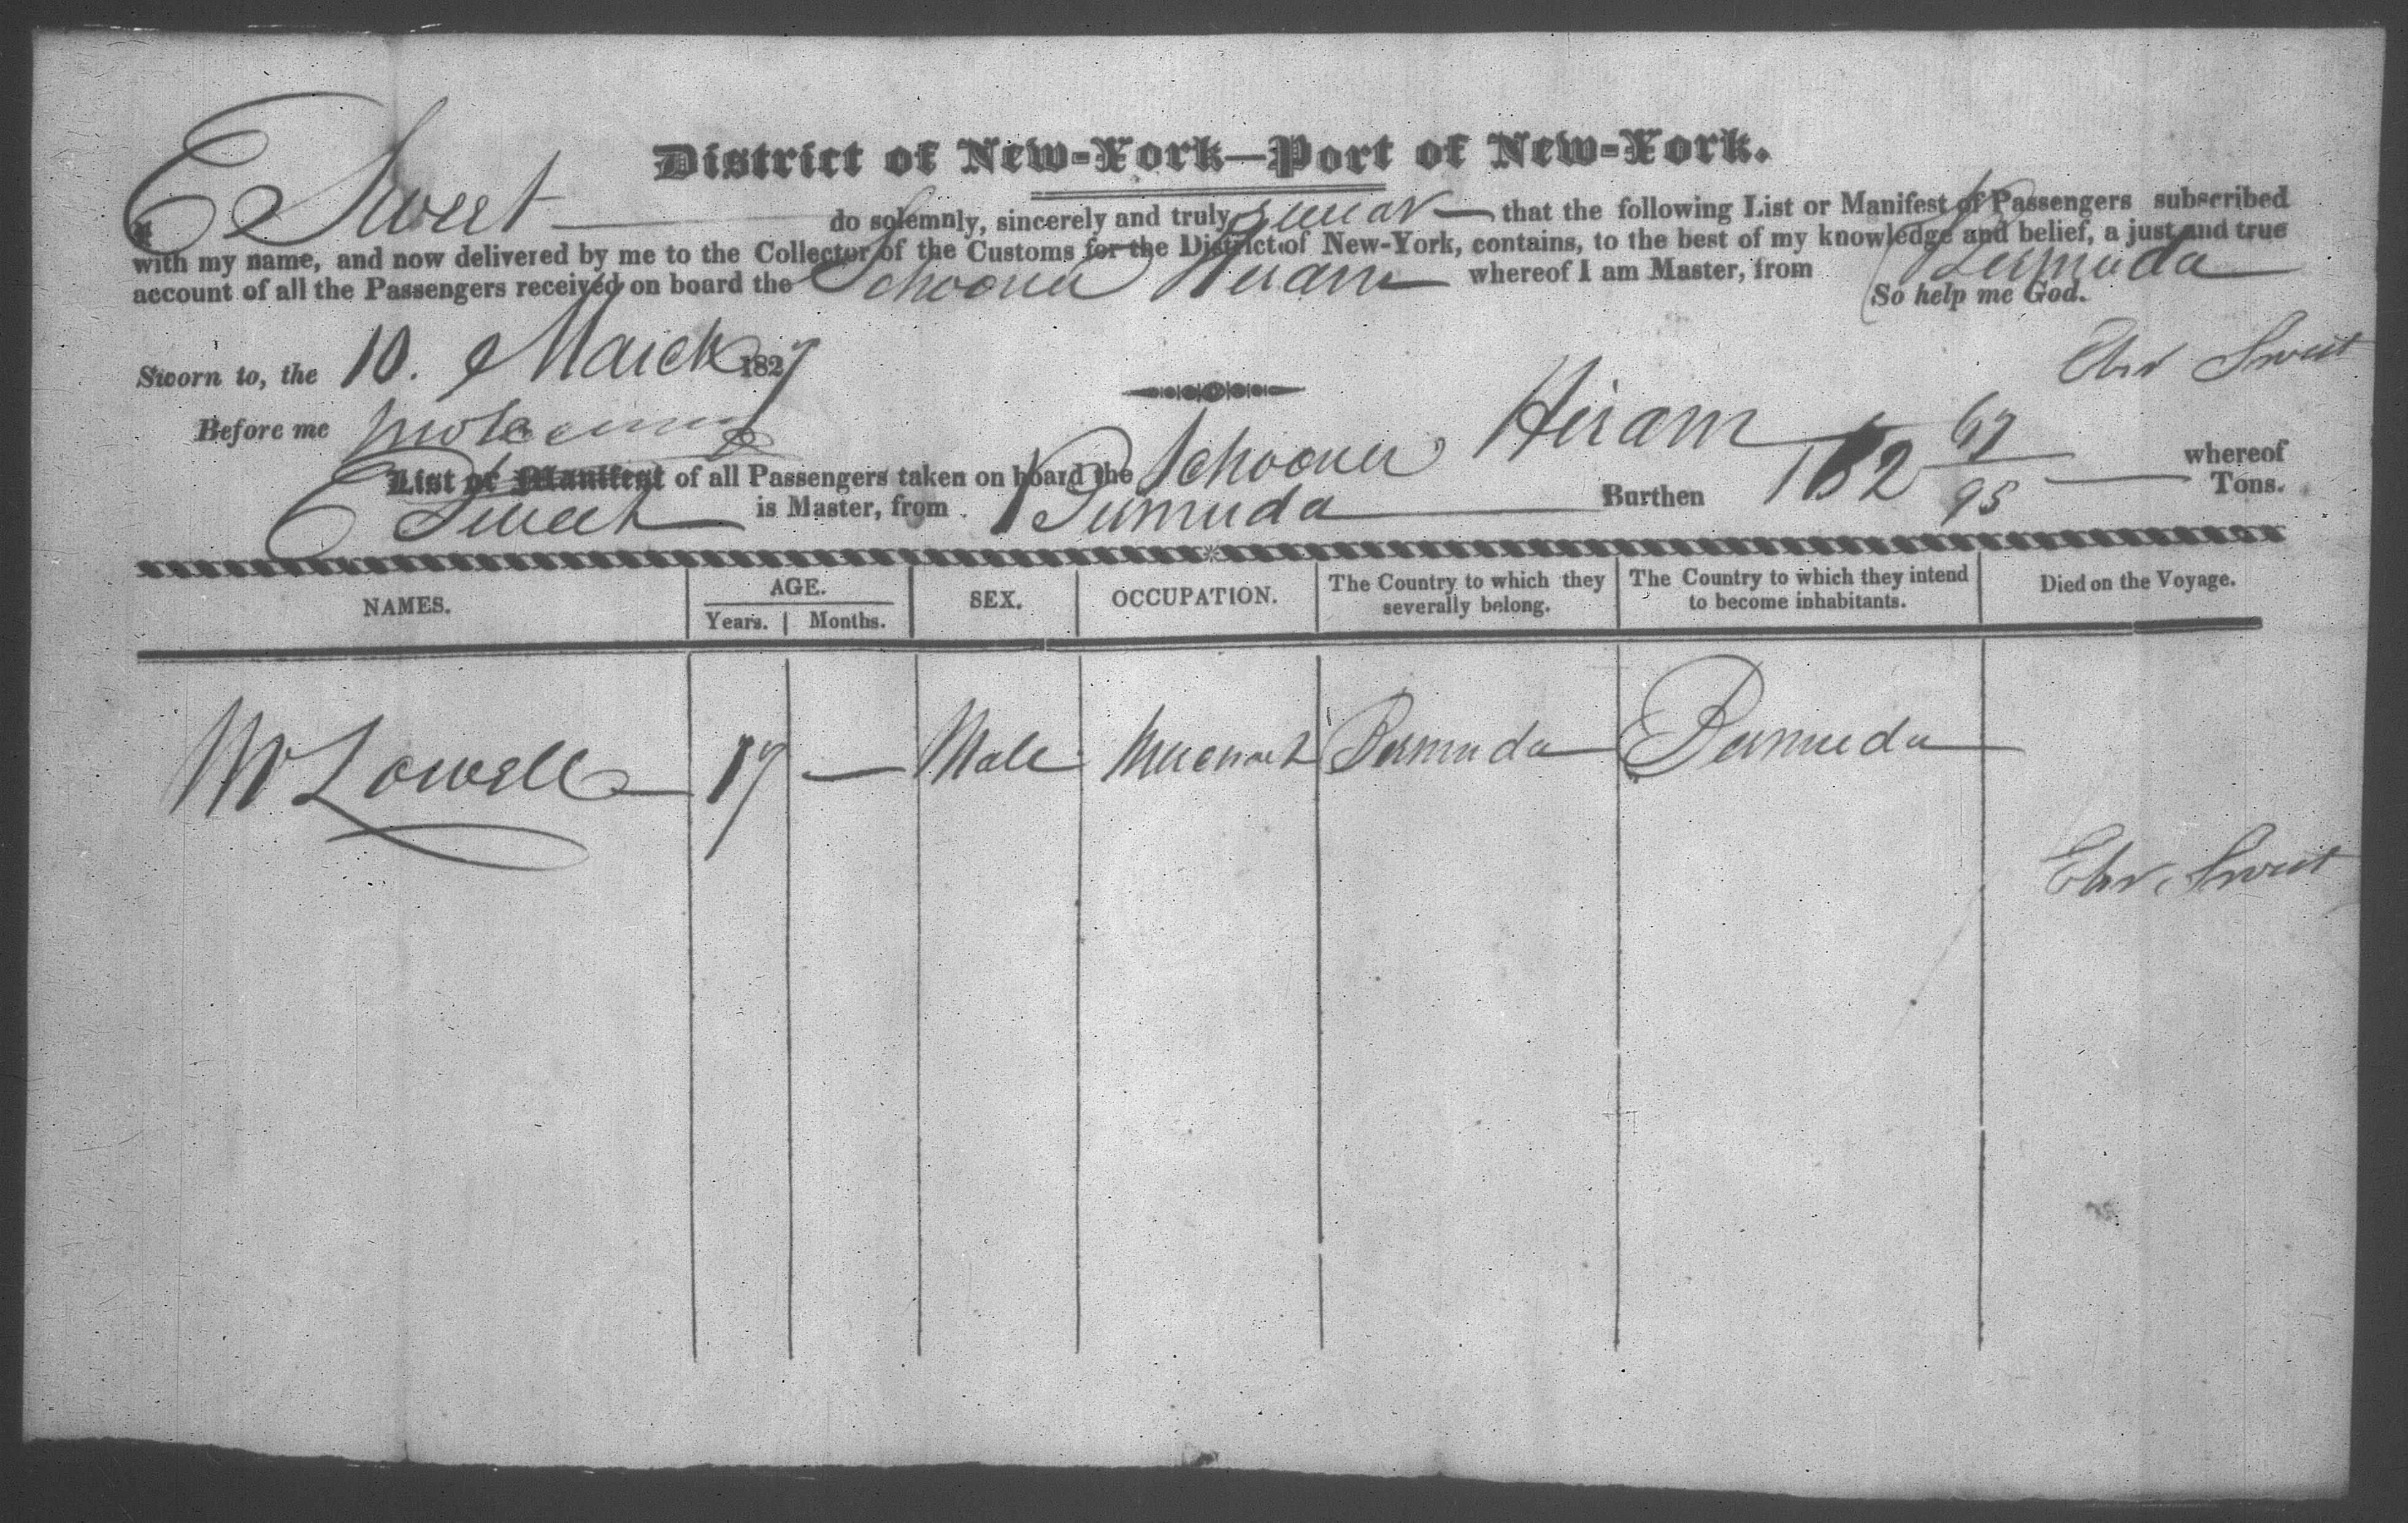 District of New-York—Port of New-York.
I E Sweet do solemnly, sincerely and truly swear that the following List or Manifest of Passengers subscribed
with my name, and now delivered by me to the Collector of the Customs for the District of New-York, contains, to the best of my knowledge and belief, a just and true
account of all the Passengers received on board the Schooner Hiram whereof I am Master, from Bermuda
So help me God.
Sworn to, the 10. March 1827
Ebr Sweet
Before me
List or Manifest of all Passengers taken on board the Schooner Hiram whereof
E Sweet is Master, from Bermuda Burthen 182 67/95 Tons.
NAMES. AGE. Years. Months. SEX. OCCUPATION. The Country to which they severally belong. The Country to which they intend to become inhabitants. Died on the Voyage.
Mr Lowell 17 — Male Merchant Bermuda Bermuda
Ebr. Sweet